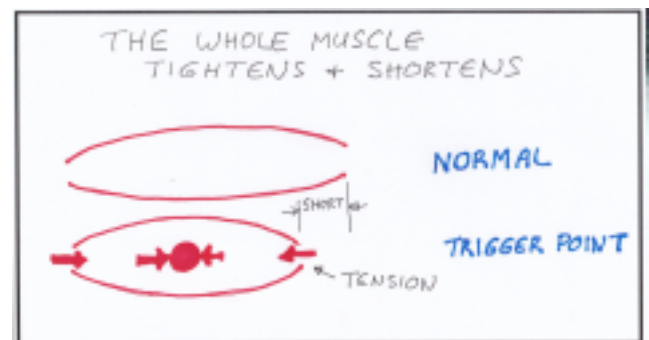 THE WHOLE MUSCLE
TIGHTENS + SHORTENS
NORMAL
SHORT
TRIGGER POINT
TENSION